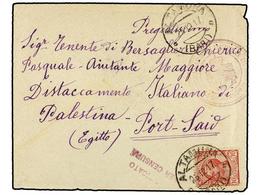 Pregiatissimo
Sigr Tenente di Bersaglieri Chierico
Pasquale - Aiutante Maggiore
Distaccamento Italiano di
Palestina - Port-Said
(Egitto)
ALTAMURA
(BARI)
CENSURA
ALTAMURA